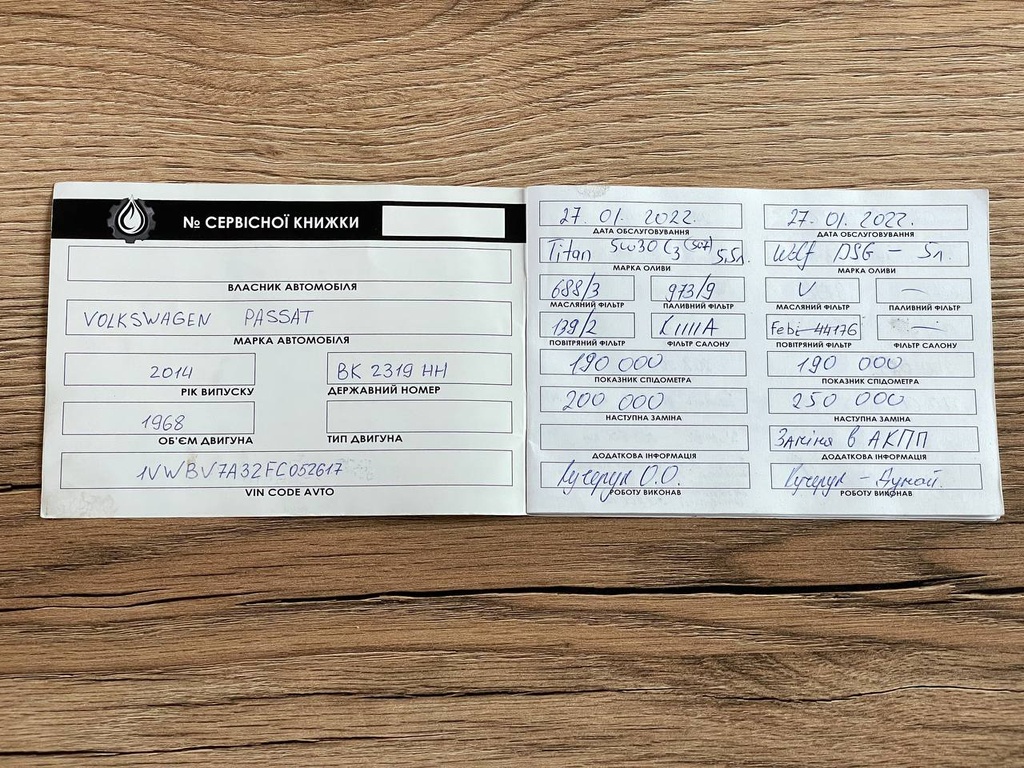 № СЕРВІСНОЇ КНИЖКИ
ВЛАСНИК АВТОМОБІЛЯ
VOLKSWAGEN PASSAT
МАРКА АВТОМОБІЛЯ
2014 ВК 2319 НН
РІК ВИПУСКУ ДЕРЖАВНИЙ НОМЕР
1968
ОБ'ЄМ ДВИГУНА ТИП ДВИГУНА
1VWBV7A32FC052617
VIN CODE АВТО
27. 01. 2022.
ДАТА ОБСЛУГОВУВАННЯ
Titan 5w30 C3 (507) 5,5л.
МАРКА ОЛИВИ
688/3 973/9
МАСЛЯНИЙ ФІЛЬТР ПАЛИВНИЙ ФІЛЬТР
139/2 K1111A
ПОВІТРЯНИЙ ФІЛЬТР ФІЛЬТР САЛОНУ
190 000
ПОКАЗНИК СПІДОМЕТРА
200 000
НАСТУПНА ЗАМІНА
ДОДАТКОВА ІНФОРМАЦІЯ
Кучерук О.О.
РОБОТУ ВИКОНАВ
27. 01. 2022.
ДАТА ОБСЛУГОВУВАННЯ
Wolf DSG – 5л.
МАРКА ОЛИВИ
V —
МАСЛЯНИЙ ФІЛЬТР ПАЛИВНИЙ ФІЛЬТР
Febi 44176 —
ПОВІТРЯНИЙ ФІЛЬТР ФІЛЬТР САЛОНУ
190 000
ПОКАЗНИК СПІДОМЕТРА
250 000
НАСТУПНА ЗАМІНА
Заміна в АКПП
ДОДАТКОВА ІНФОРМАЦІЯ
Кучерук – Дунай.
РОБОТУ ВИКОНАВ